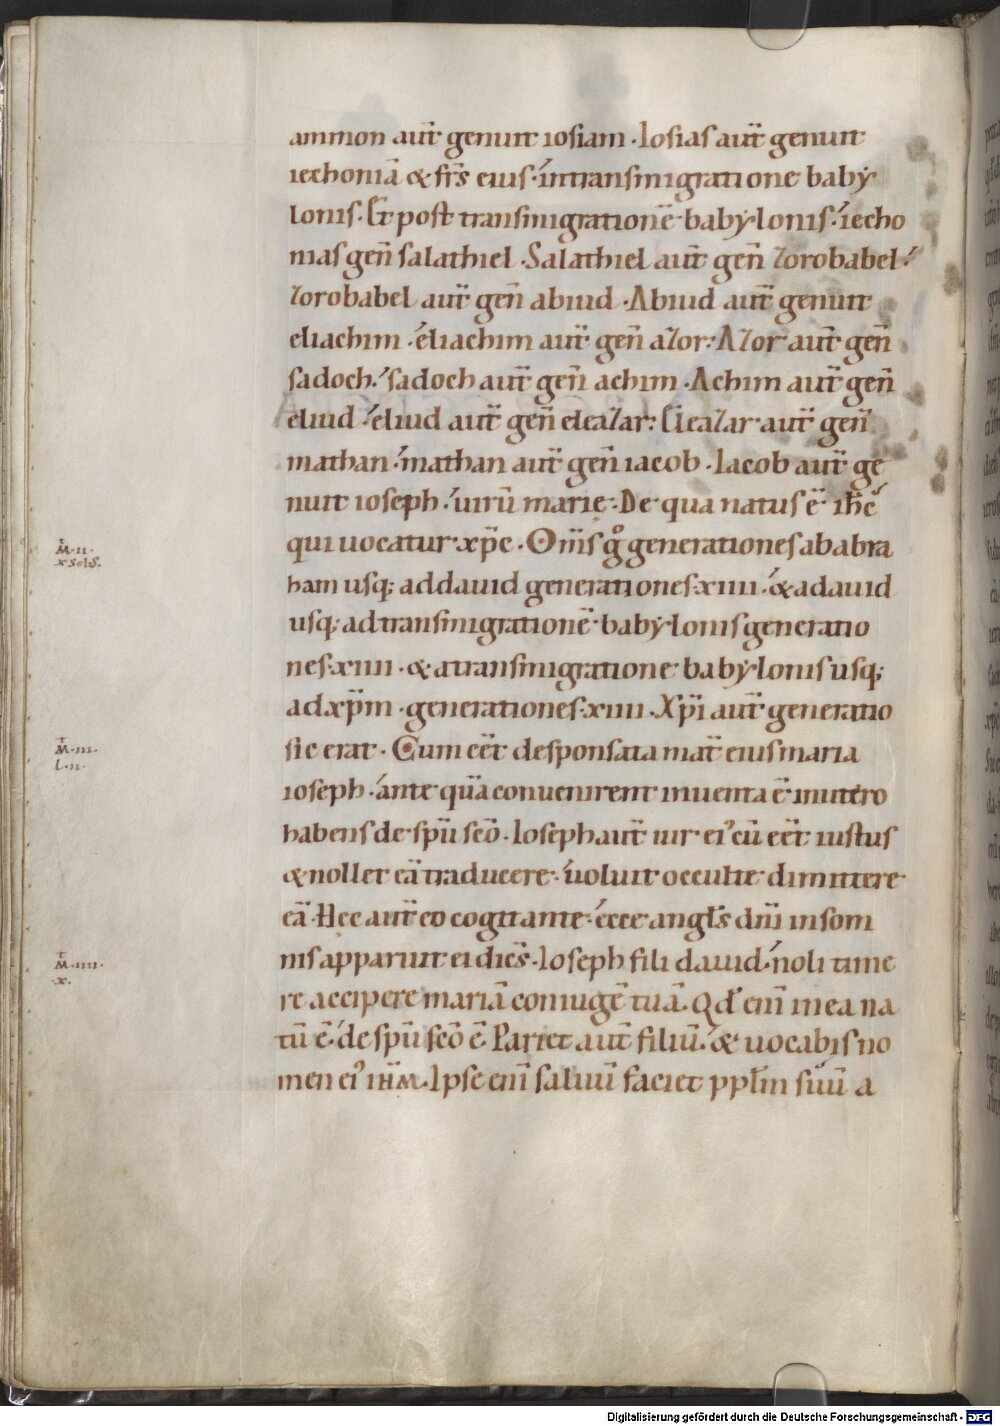 ammon aut̄ genuit iosiam · Iosias aut̄ genuit
iechoniā & fr̄s eius · intransmigratione baby
lonis · Et post transmigrationē babylonis · iecho
nias geñ salathiel · Salathiel aut̄ geñ zorobabel ·
Zorobabel aut̄ geñ abiud · Abiud aut̄ genuit
eliachim · eliachim aut̄ geñ azor · Azor aut̄ geñ
sadoch · sadoch aut̄ geñ achim · Achim aut̄ geñ
eliud · eliud aut̄ geñ eleazar · Eleazar aut̄ geñ
mathan · mathan aut̄ geñ iacob · Iacob aut̄ ge
nuit ioseph · uirū marie · De qua natus ē ihc̄
qui uocatur xp̄c · Om̄s gͦ generationes ababra
ham usq; addauid generationes xiiii · & adauid
usq; adtransmigrationē babylonis generatio
nes xiiii · & atransmigratione babylonis usq;
ad xp̄m · generationes xiiii · Xp̄i aut̄ generatio
sic erat · Cum eēt desponsata mat̄ eius maria
ioseph · ante quā conuenirent inuenta ē inutero
habens de sp̄u sc̄o · Ioseph aut̄ uir ei' cū eēt iustus
& nollet eā traducere · uoluit occulte dimittere
eā · Hec aut̄ eo cogitante · ecce angl̄s dn̄i insom
nis apparuit ei dicēs · Ioseph fili dauid · noli time
re accipere mariā coniugē tuā · Qd̄ eni̅ inea na
tū ē · de sp̄u sc̄o ē · Pariet aut̄ filiū · & uocabis no
men ei' ihm̄ · Ipse eni̅ saluū faciet ppl̄m suū a
M · ii ·
x solus ·
M · iii ·
l · ii ·
M · iiii ·
· x ·
Digitalisierung gefördert durch die Deutsche Forschungsgemeinschaft - DFG